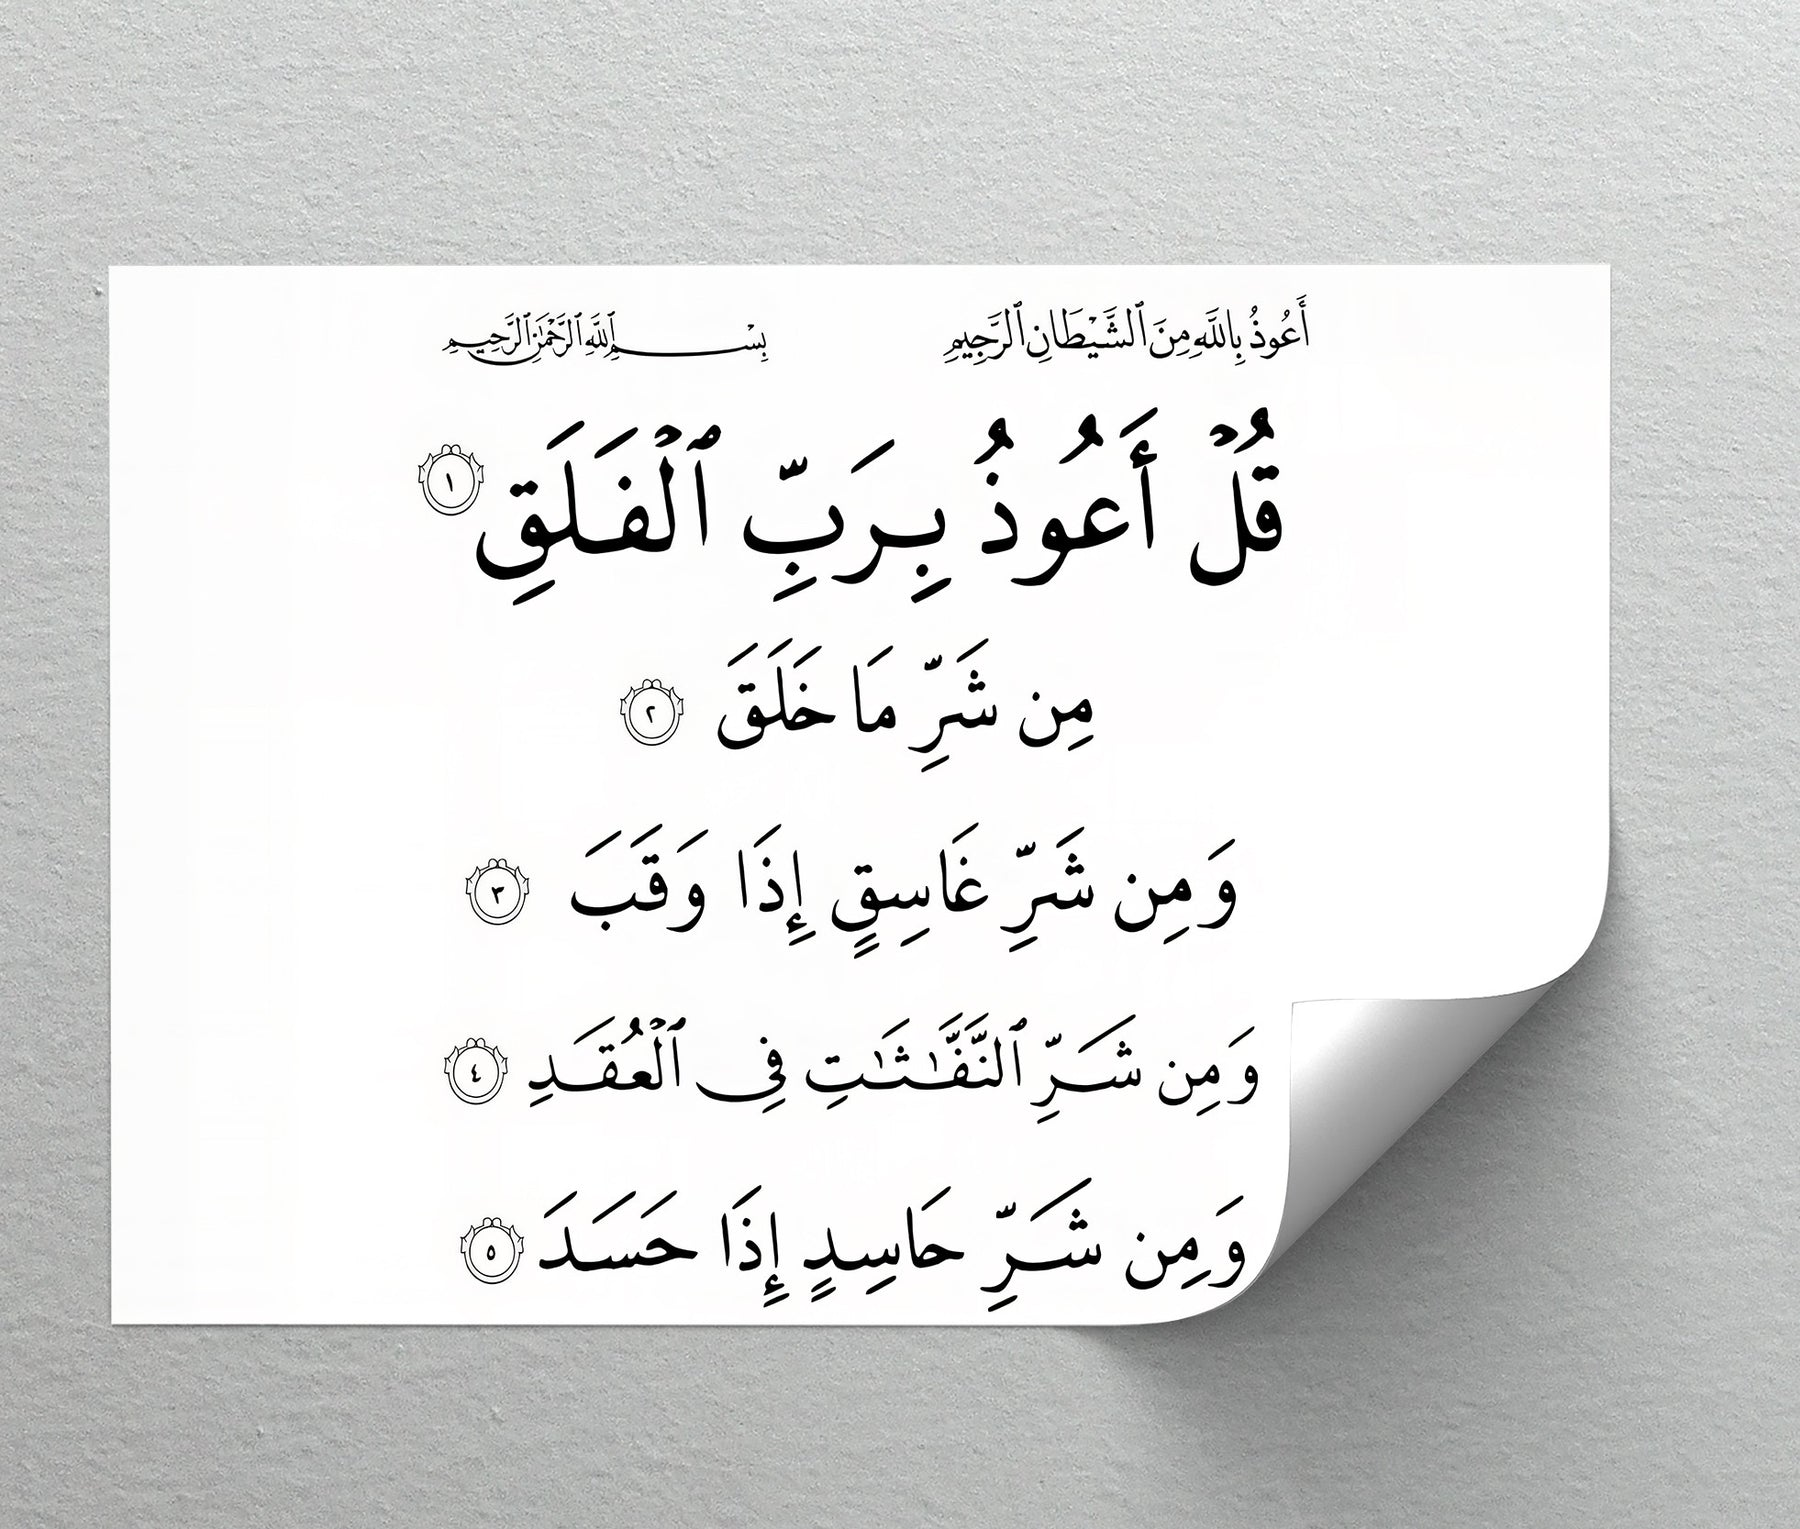 أَعُوذُ بِاللَّهِ مِنَ ٱلشَّيْطَانِ ٱلرَّجِيمِ بِسْمِ ٱللَّهِ ٱلرَّحْمَٰنِ ٱلرَّحِيمِ
قُلْ أَعُوذُ بِرَبِّ ٱلْفَلَقِ ١
مِن شَرِّ مَا خَلَقَ ٢
وَمِن شَرِّ غَاسِقٍ إِذَا وَقَبَ ٣
وَمِن شَرِّ ٱلنَّفَّٰثَٰتِ فِى ٱلْعُقَدِ ٤
وَمِن شَرِّ حَاسِدٍ إِذَا حَسَدَ ٥